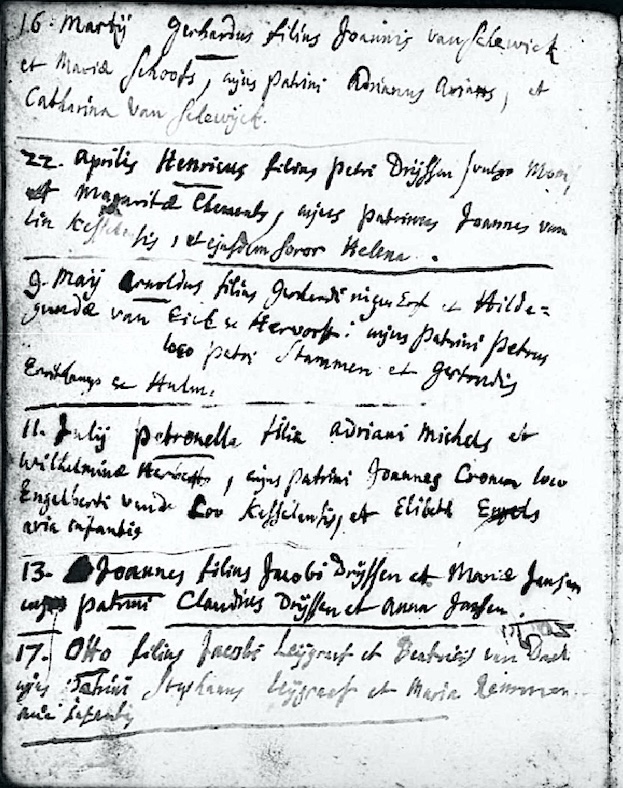 16. Martij Gerhardus filius Joannis van Selewick
et Mariæ Schoofs, cujus patrini Adrianus Arians, et
Catharina van Selewijck.
22. Aprilis Henricus filius Petri Drijssen
et Magaritæ Clements, cujus patrinus Joannes van
, et ejusdem soror Helena.
9. Maij Arnoldus filius Gerhardi et Hilde=
gundæ van Eick ex Hervorst: cujus patrini Petrus
loco Petri Stammen et Gertrudis
ex Hulm.
11. Julij Petronella filia Adriani Michels et
Wilhelminæ Herberts, cujus patrini Joannes Cronen loco
Engelberti vande Loo Kesselensis, et Elibeth Engels
avia infantis
13. Joannes filius Jacobi Drijssen et Mariæ Jansen
cujus patrini Claudius Drijssen et Anna Jansen.
17. Otto filius Jacobi Leijgraef et Beatricis van
cujus Patrini Stephanus Leijgraef et Maria
avia infantis